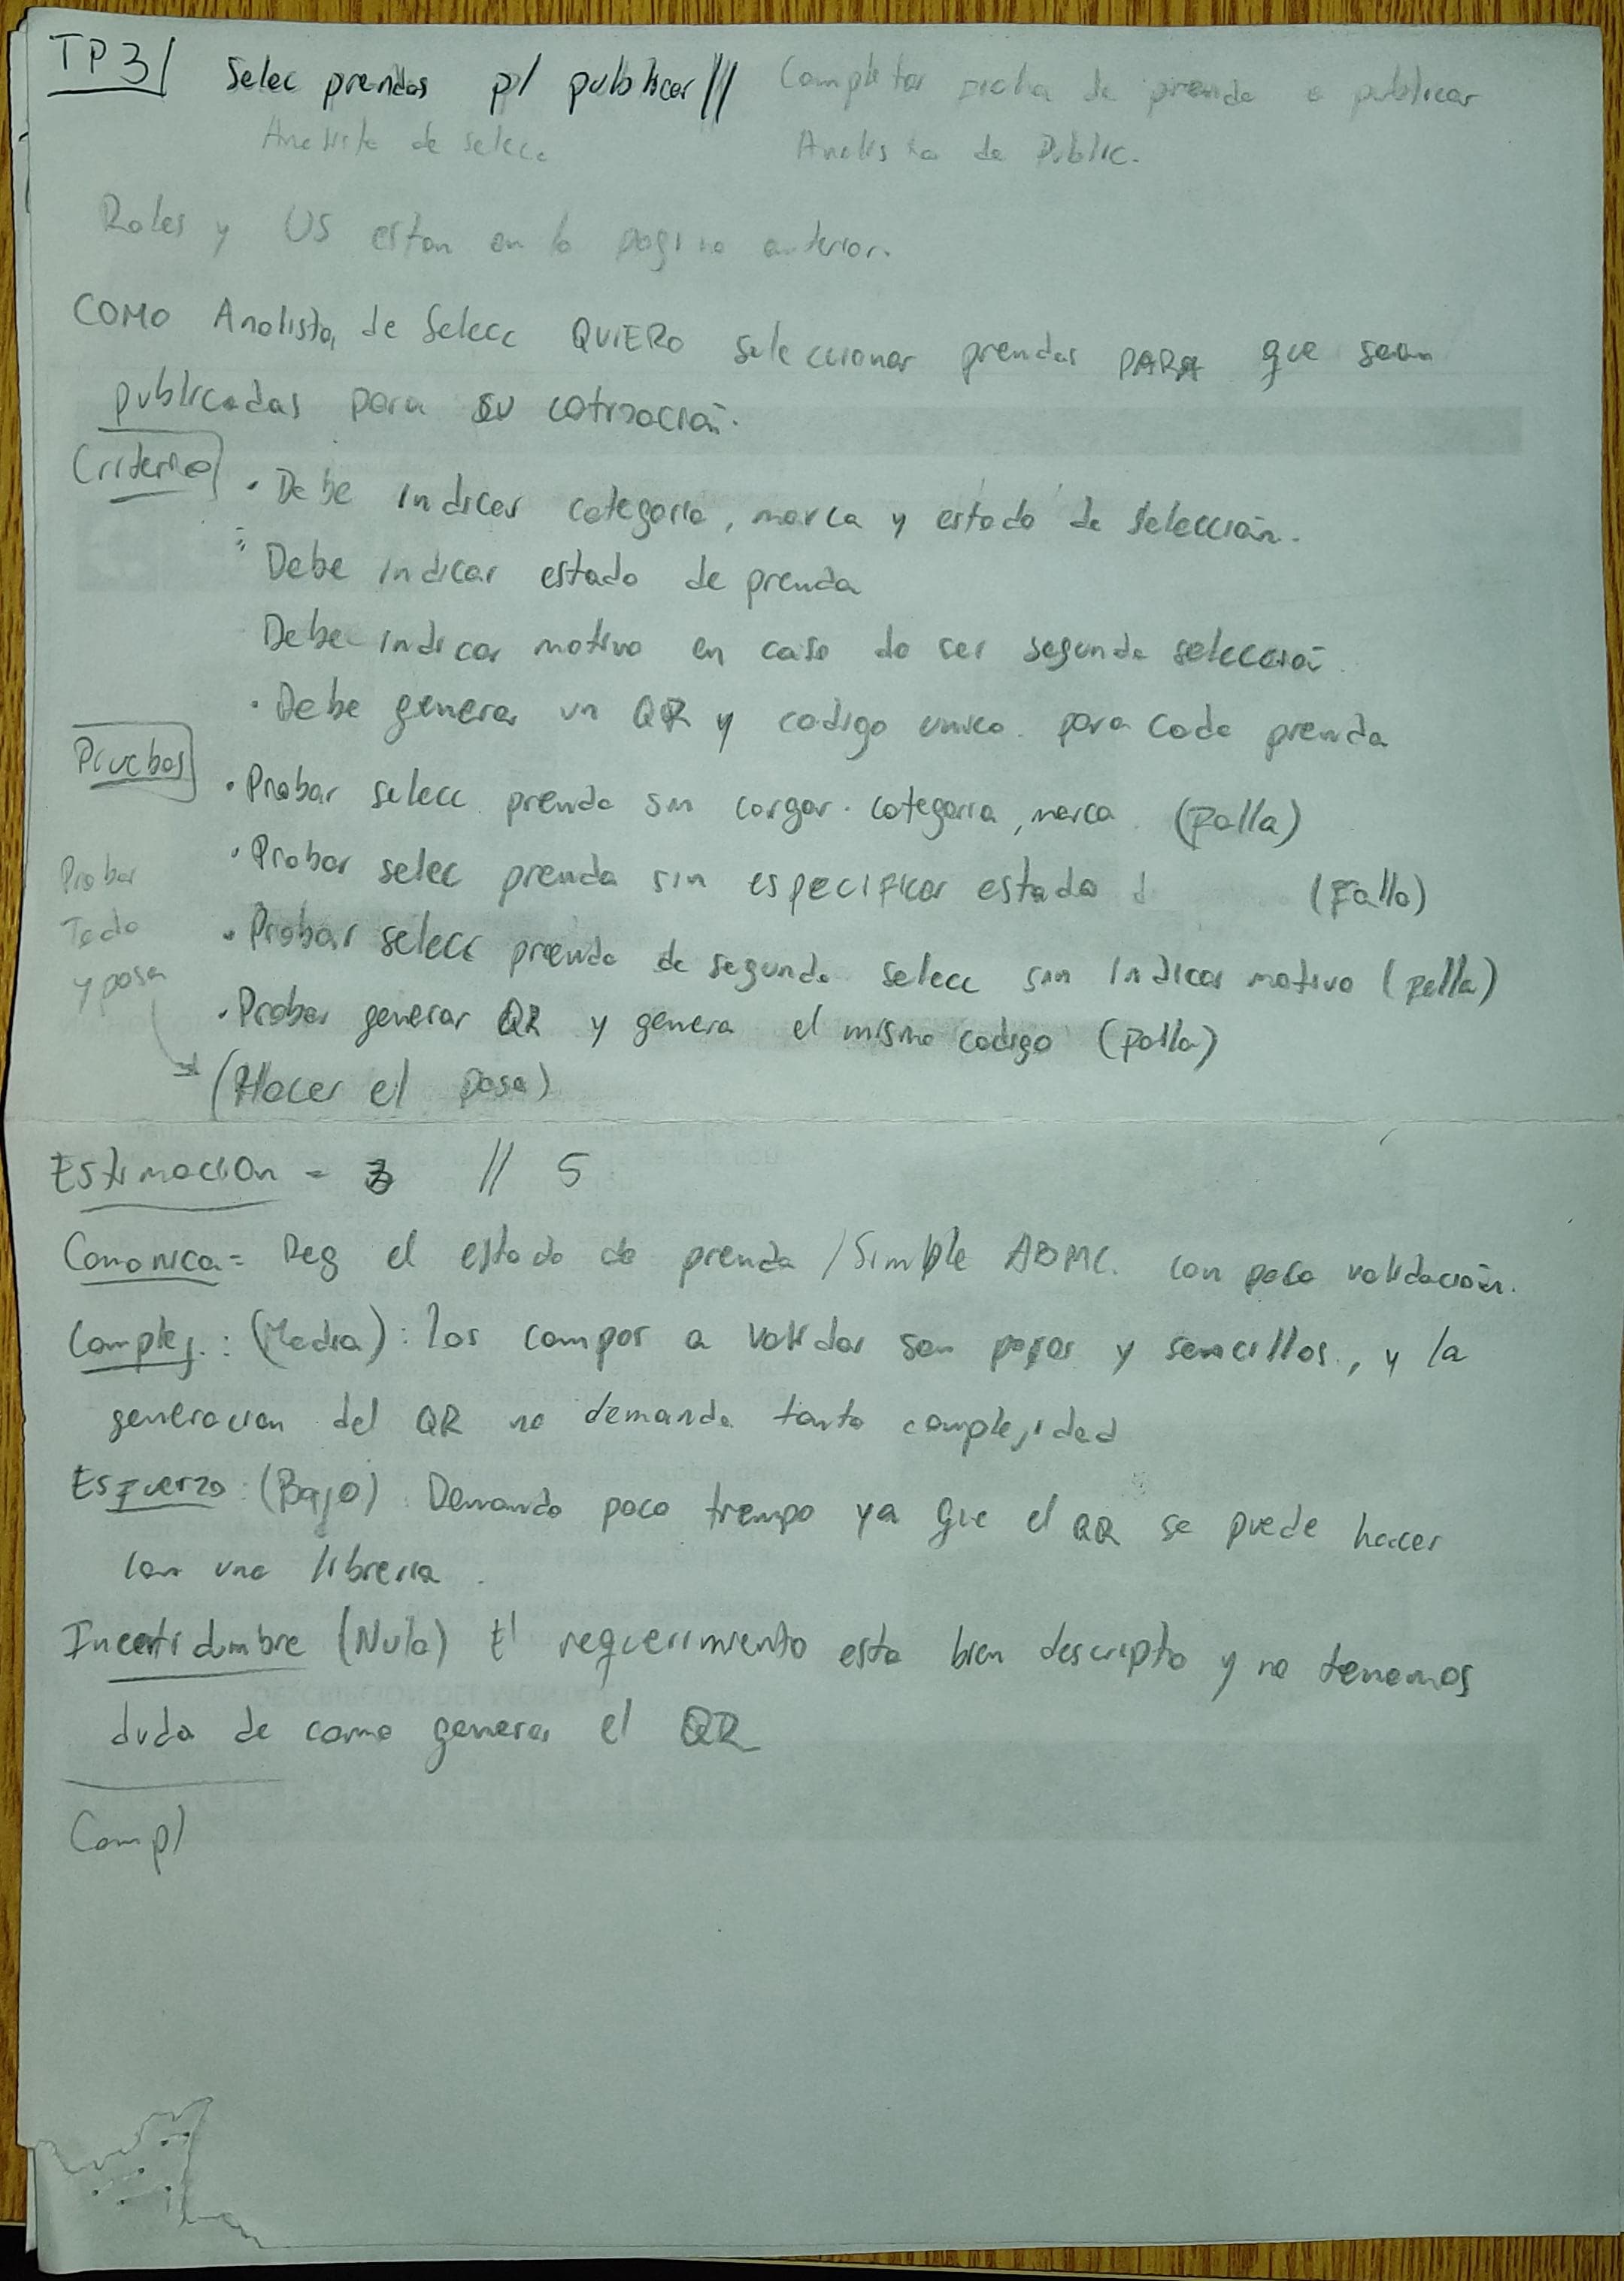 TP3/ Selec prendas p/ publicar // Completar Ficha de prenda a publicar
Analista de selecc Analista de Public.
Roles y US estan en la pagina anterior.
COMO Analista de Selecc QUIERO seleccionar prendas PARA que sean
publicadas para su cotización.
Criterio • Debe indicar categoria, marca y estado de selección.
Debe indicar estado de prenda
Debe indicar motivo en caso de ser segunda selección.
• Debe generar un QR y codigo unico para cada prenda
Pruebas • Probar selecc prenda sin cargar categoria, marca (Falla)
• Probar selec prenda sin especificar estado (Falla)
• Probar selecc prenda de segunda selecc sin indicar motivo (Falla)
• Probar generar QR y genera el mismo codigo (Falla)
Probar
Todo
y pasa
(Hacer el pasa)
Estimacion = 3 // 5
Canonica = Reg el estado de prenda / Simple ABMC. con poca validación.
Complej.: (Media): los campos a validar son pocos y sencillos, y la
generacion del QR no demanda tanta complejidad
Esfuerzo: (Bajo) Demanda poco tiempo ya que el QR se puede hacer
con una libreria.
Incertidumbre (Nula) El requerimiento esta bien descripto y no tenemos
duda de como generar el QR
Compl